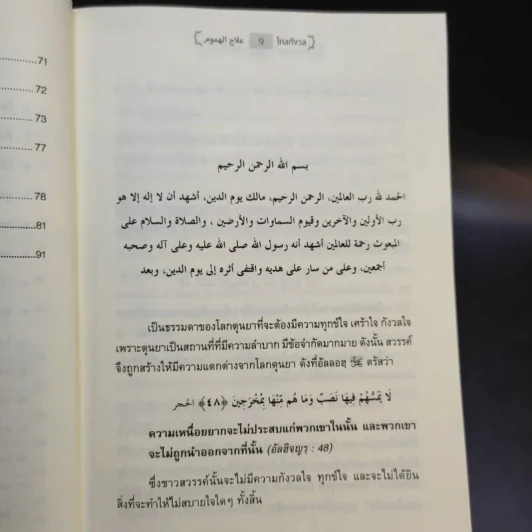 71
72
73
77
78
81
91
ไกลกังวล 9 علاج الهموم
بسم الله الرحمن الرحيم
الحمد لله رب العالمين، الرحمن الرحيم، مالك يوم الدين، أشهد أن لا إله إلا هو
رب الأولين والآخرين وقيوم السماوات والأرضين ، والصلاة والسلام على
المبعوث رحمة للعالمين أشهد أنه رسول الله صلى الله عليه وعلى آله وصحبه
أجمعين، وعلى من سار على هديه واقتفى أثره إلى يوم الدين، وبعد
เป็นธรรมดาของโลกดุนยาที่จะต้องมีความทุกข์ใจ เศร้าใจ กังวลใจ
เพราะดุนยาเป็นสถานที่ที่มีความลำบาก มีข้อจำกัดมากมาย ดังนั้น สวรรค์
จึงถูกสร้างให้มีความแตกต่างจากโลกดุนยา ดังที่อัลลอฮฺ ﷻ ตรัสว่า
لَا يَمَسُّهُمْ فِيهَا نَصَبٌ وَمَا هُم مِّنْهَا بِمُخْرَجِينَ ﴿٤٨﴾ الحجر
ความเหนื่อยยากจะไม่ประสบแก่พวกเขาในนั้น และพวกเขา
จะไม่ถูกนำออกจากที่นั้น (อัลฮิจญรฺ : 48)
ซึ่งชาวสวรรค์นั้นจะไม่มีความกังวลใจ ทุกข์ใจ และจะไม่ได้ยิน
สิ่งที่จะทำให้ไม่สบายใจใดๆ ทั้งสิ้น